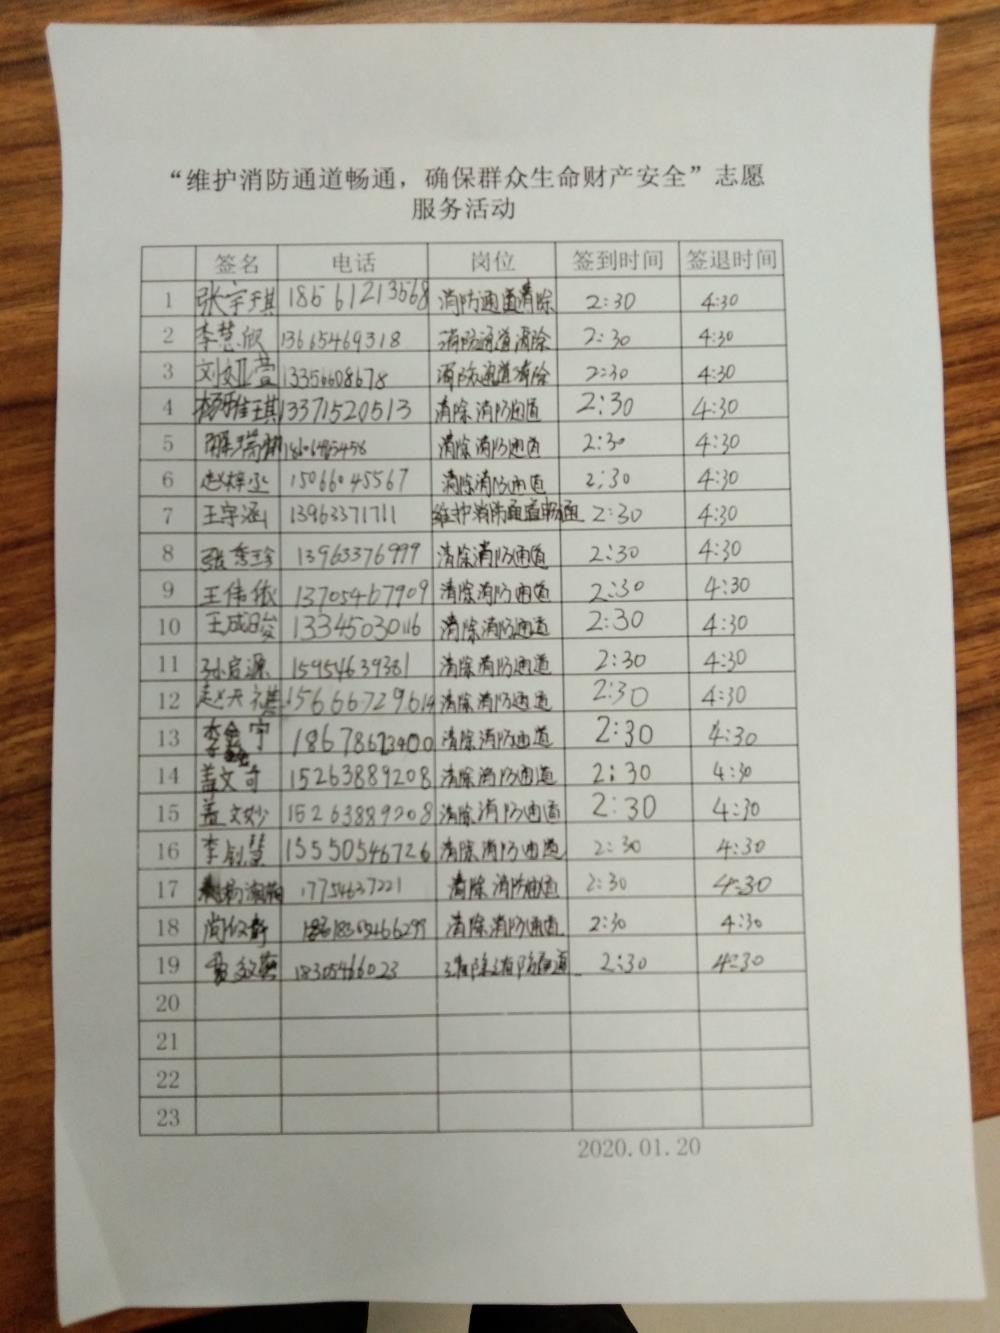 “维护消防通道畅通，确保群众生命财产安全”志愿
服务活动
签名 电话 岗位 签到时间 签退时间
1 张宇琪 18661213568 消防通道清除 2:30 4:30
2 李慧欣 13665469318 消防通道清除 2:30 4:30
3 刘亚萱 13356608678 消防通道清除 2:30 4:30
4 杨雅琪 13371520513 清除消防通道 2:30 4:30
5 清除消防通道 2:30 4:30
6 赵梓丞 15066045567 清除消防通道 2:30 4:30
7 王宇涵 13963371711 维护消防通道畅通 2:30 4:30
8 张 13963376999 清除消防通道 2:30 4:30
9 王伟依 13705467909 清除消防通道 2:30 4:30
10 王成骏 13345030116 清除消防通道 2:30 4:30
11 孙启源 15954639381 清除消防通道 2:30 4:30
12 赵天祺 15666729614 清除消防通道 2:30 4:30
13 李 宁 18678623400 清除消防通道 2:30 4:30
14 盖文奇 15263889208 清除消防通道 2:30 4:30
15 盖文妙 15263889208 清除消防通道 2:30 4:30
16 李钊慧 15550546726 清除消防通道 2:30 4:30
17 17754637221 清除消防通道 2:30 4:30
18 尚 清除消防通道 2:30 4:30
19 18305466023 清除消防通道 2:30 4:30
20
21
22
23
2020.01.20